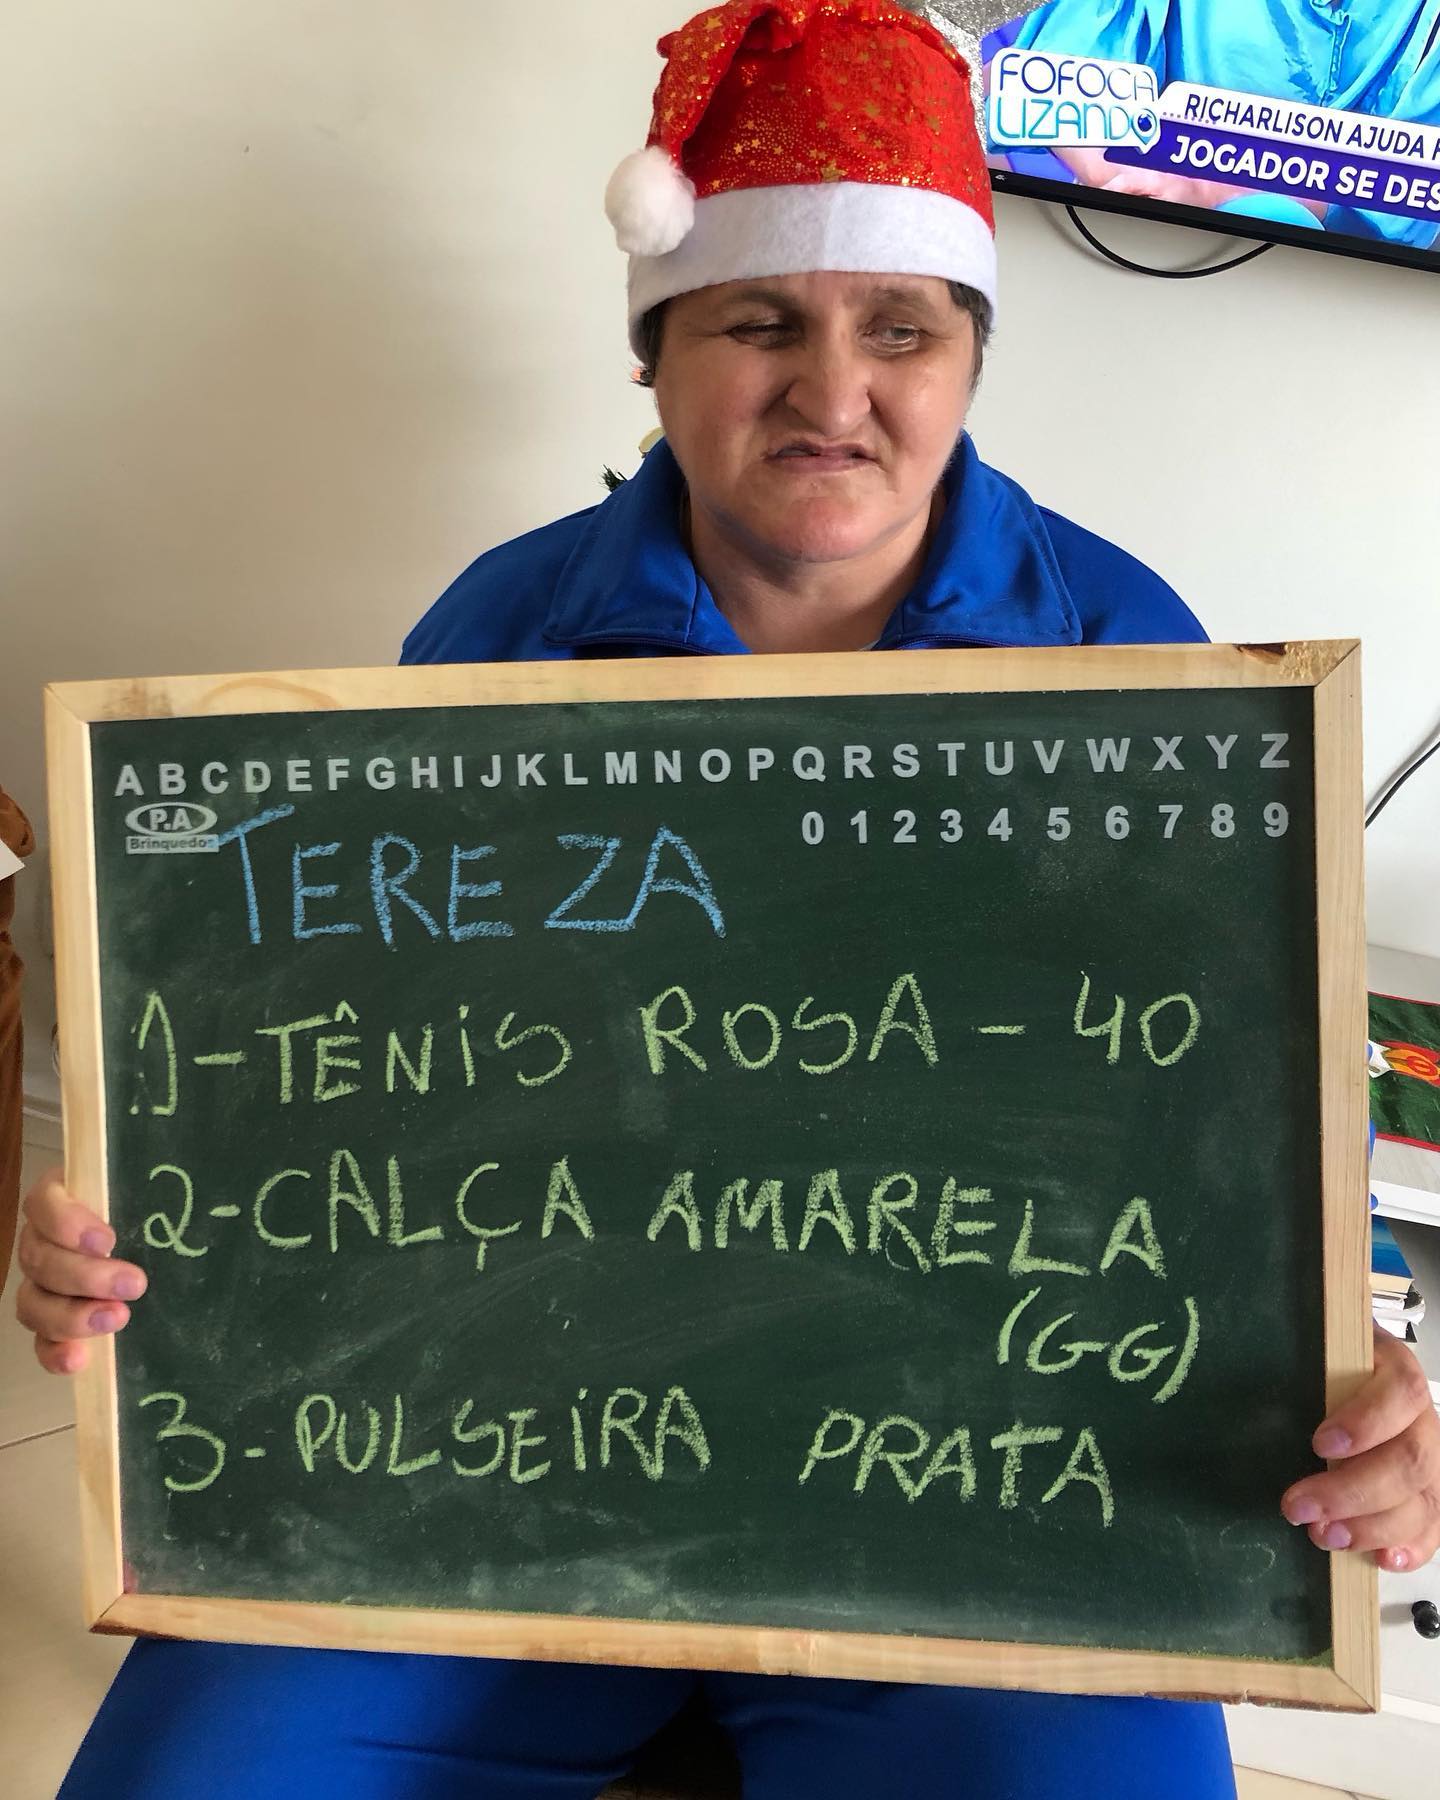 FOFOCA
LIZANDO
RICHARLISON AJUDA
JOGADOR SE DES
A B C D E F G H I J K L M N O P Q R S T U V W X Y Z
P.A
Brinquedos
0 1 2 3 4 5 6 7 8 9
TEREZA
1) - TÊNIS ROSA - 40
2 - CALÇA AMARELA
(GG)
3 - PULSEIRA PRATA